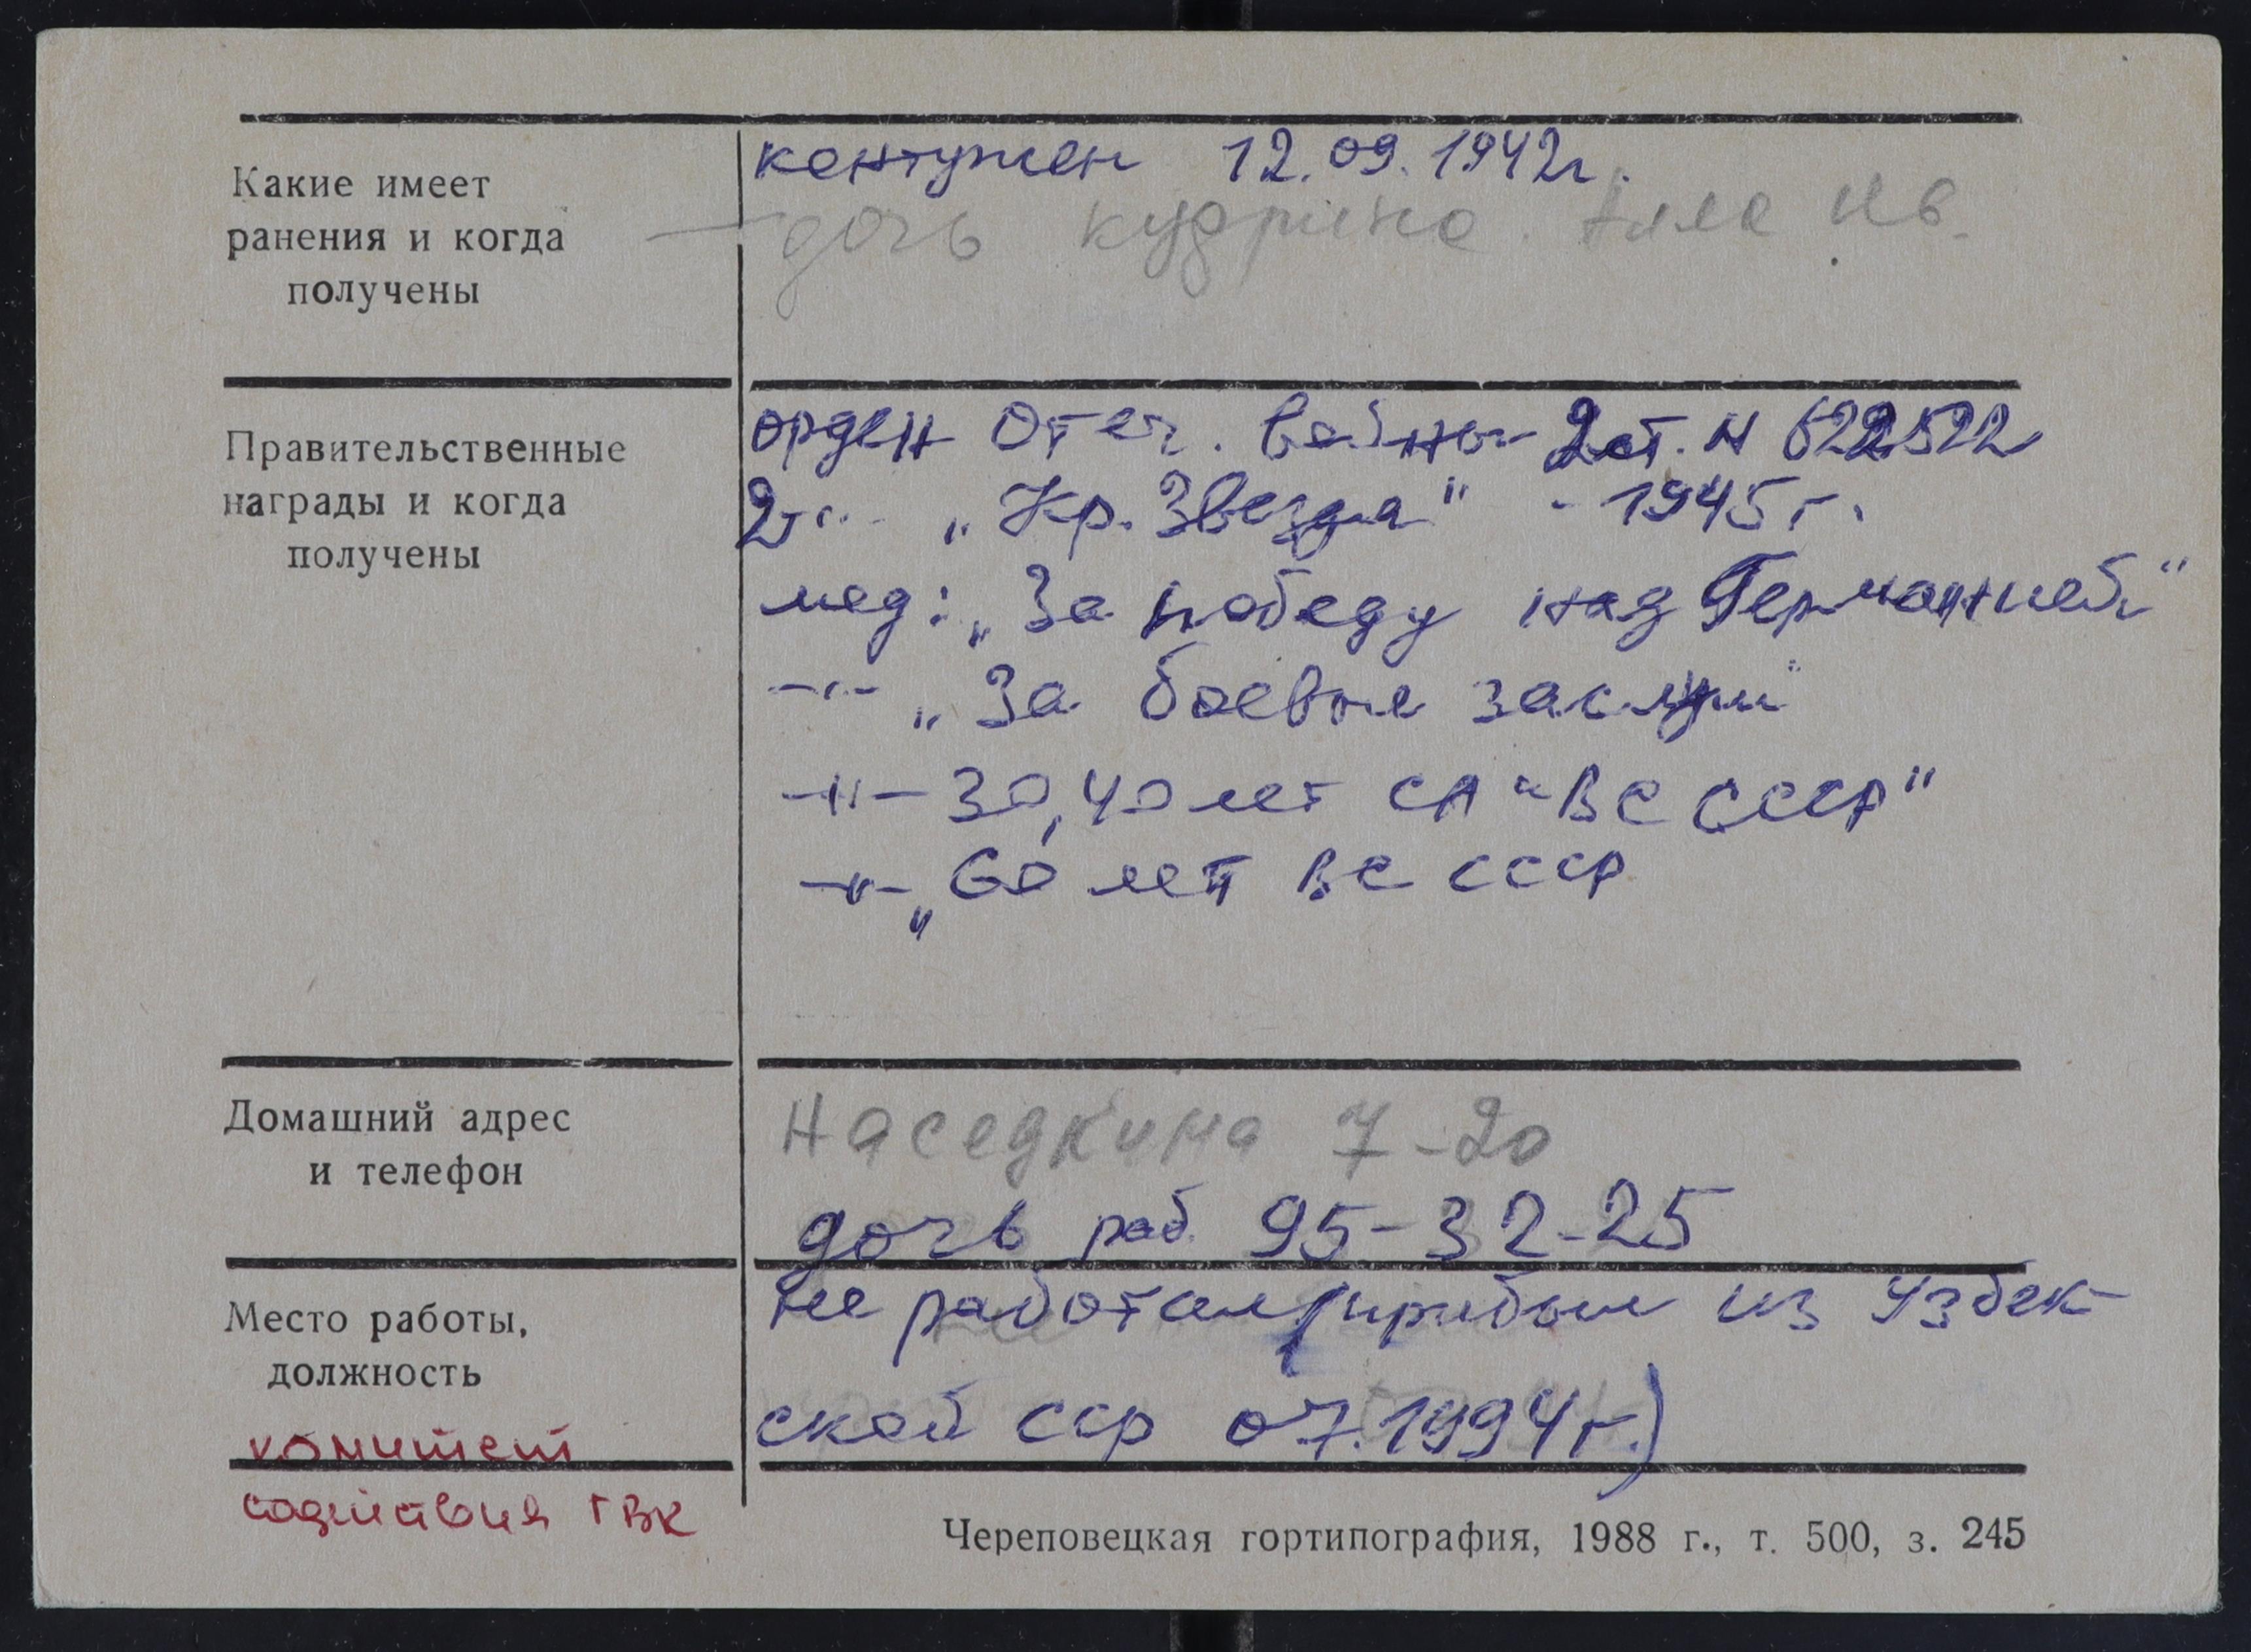 Какие имеет
ранения и когда
получены
контужен 12.09.1942г.
дочь Кудрина Алла Ив.
Правительственные
награды и когда
получены
орден Отеч. войны 2 ст. N 622522
2 -"- „Кр. Звезда" - 1945 г.
мед: „За победу над Германией"
-"- „За боевые заслуги"
-"- 30, 40 лет СА "ВС СССР"
-"- „60 лет ВС СССР
Домашний адрес
и телефон
Наседкина 7-20
дочь раб. 95-32-25
Место работы,
должность
не работал (прибыл из Узбек-
ской ССР 07.1994г.)
комитет
содействия ГВК
Череповецкая гортипография, 1988 г., т. 500, з. 245